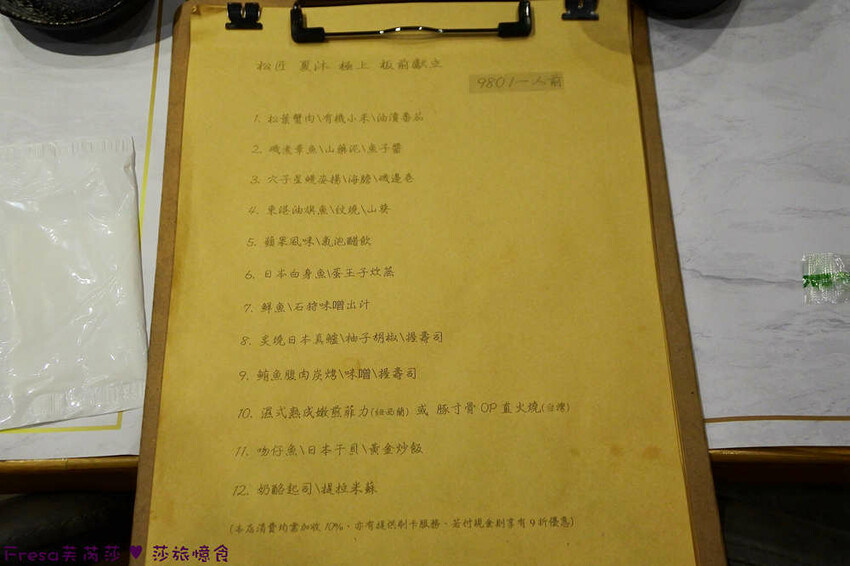 松匠 夏沐 極上 板前獻立
980 1一人前
1. 松葉蟹肉\有機小米\油漬番茄
2. 磯煮章魚\山藥泥\魚子醬
3. 穴子星鰻姿揚\海膽\磯邊卷
4. 東港油旗魚\炆燒\山葵
5. 蘋果風味\氣泡醋飲
6. 日本白身魚\蛋王子炊蒸
7. 鮮魚\石狩味噌出汁
8. 炙燒日本真鱸\柚子胡椒\握壽司
9. 鮪魚腹肉炭烤\味噌\握壽司
10. 濕式熟成嫩煎菲力(紐西蘭) 或 豚寸骨OP直火燒(台灣)
11. 吻仔魚\日本干貝\黃金炒飯
12. 奶酪起司\提拉米蘇
(本店消費均需加收10%、亦有提供刷卡服務、若付現金則享有9折優惠)
Fresa芙芮莎 ♥ 莎旅憶食